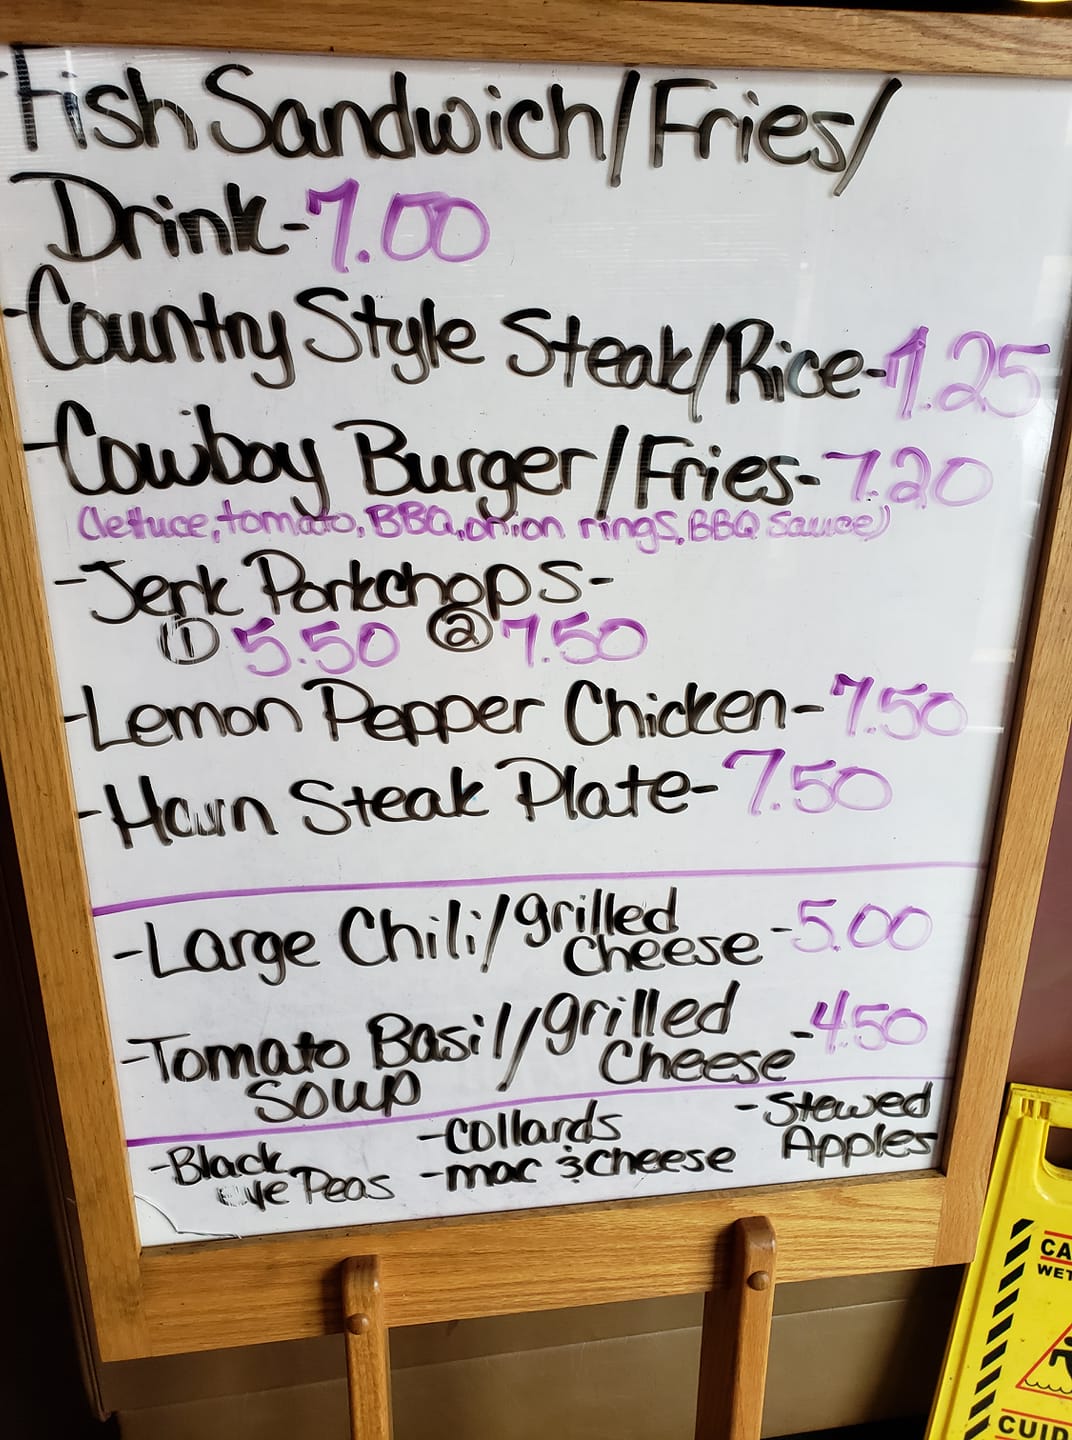 -Fish Sandwich/Fries/
Drink-7.00
-Country Style Steak/Rice-7.25
-Cowboy Burger/Fries-7.20
(lettuce, tomato, BBQ, onion rings, BBQ Sauce)
-Jerk Porkchops-
① 5.50 ② 7.50
-Lemon Pepper Chicken-7.50
-Ham Steak Plate-7.50
-Large Chili/grilled
cheese-5.00
-Tomato Basil/grilled
Soup Cheese-4.50
-Black
eye Peas
-collards
-mac & cheese
-Stewed
Apples
CA
WET
CUID